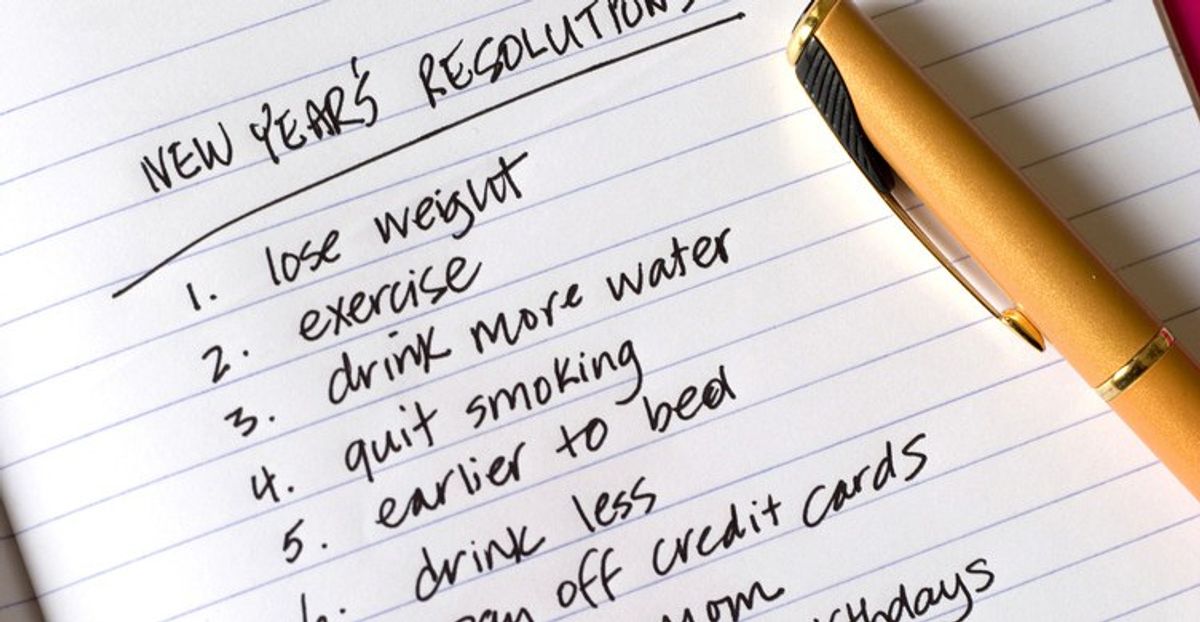 NEW YEAR'S RESOLUTIONS
1. lose weight
2. exercise
3. drink more water
4. quit smoking
5. earlier to bed
6. drink less
off credit cards
Mom